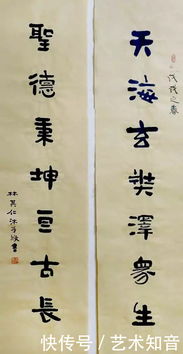 戊戌之春
天海玄奘澤衆生
聖德秉坤亘古長
林其仁沐手敬書
快传号 / 艺术知音